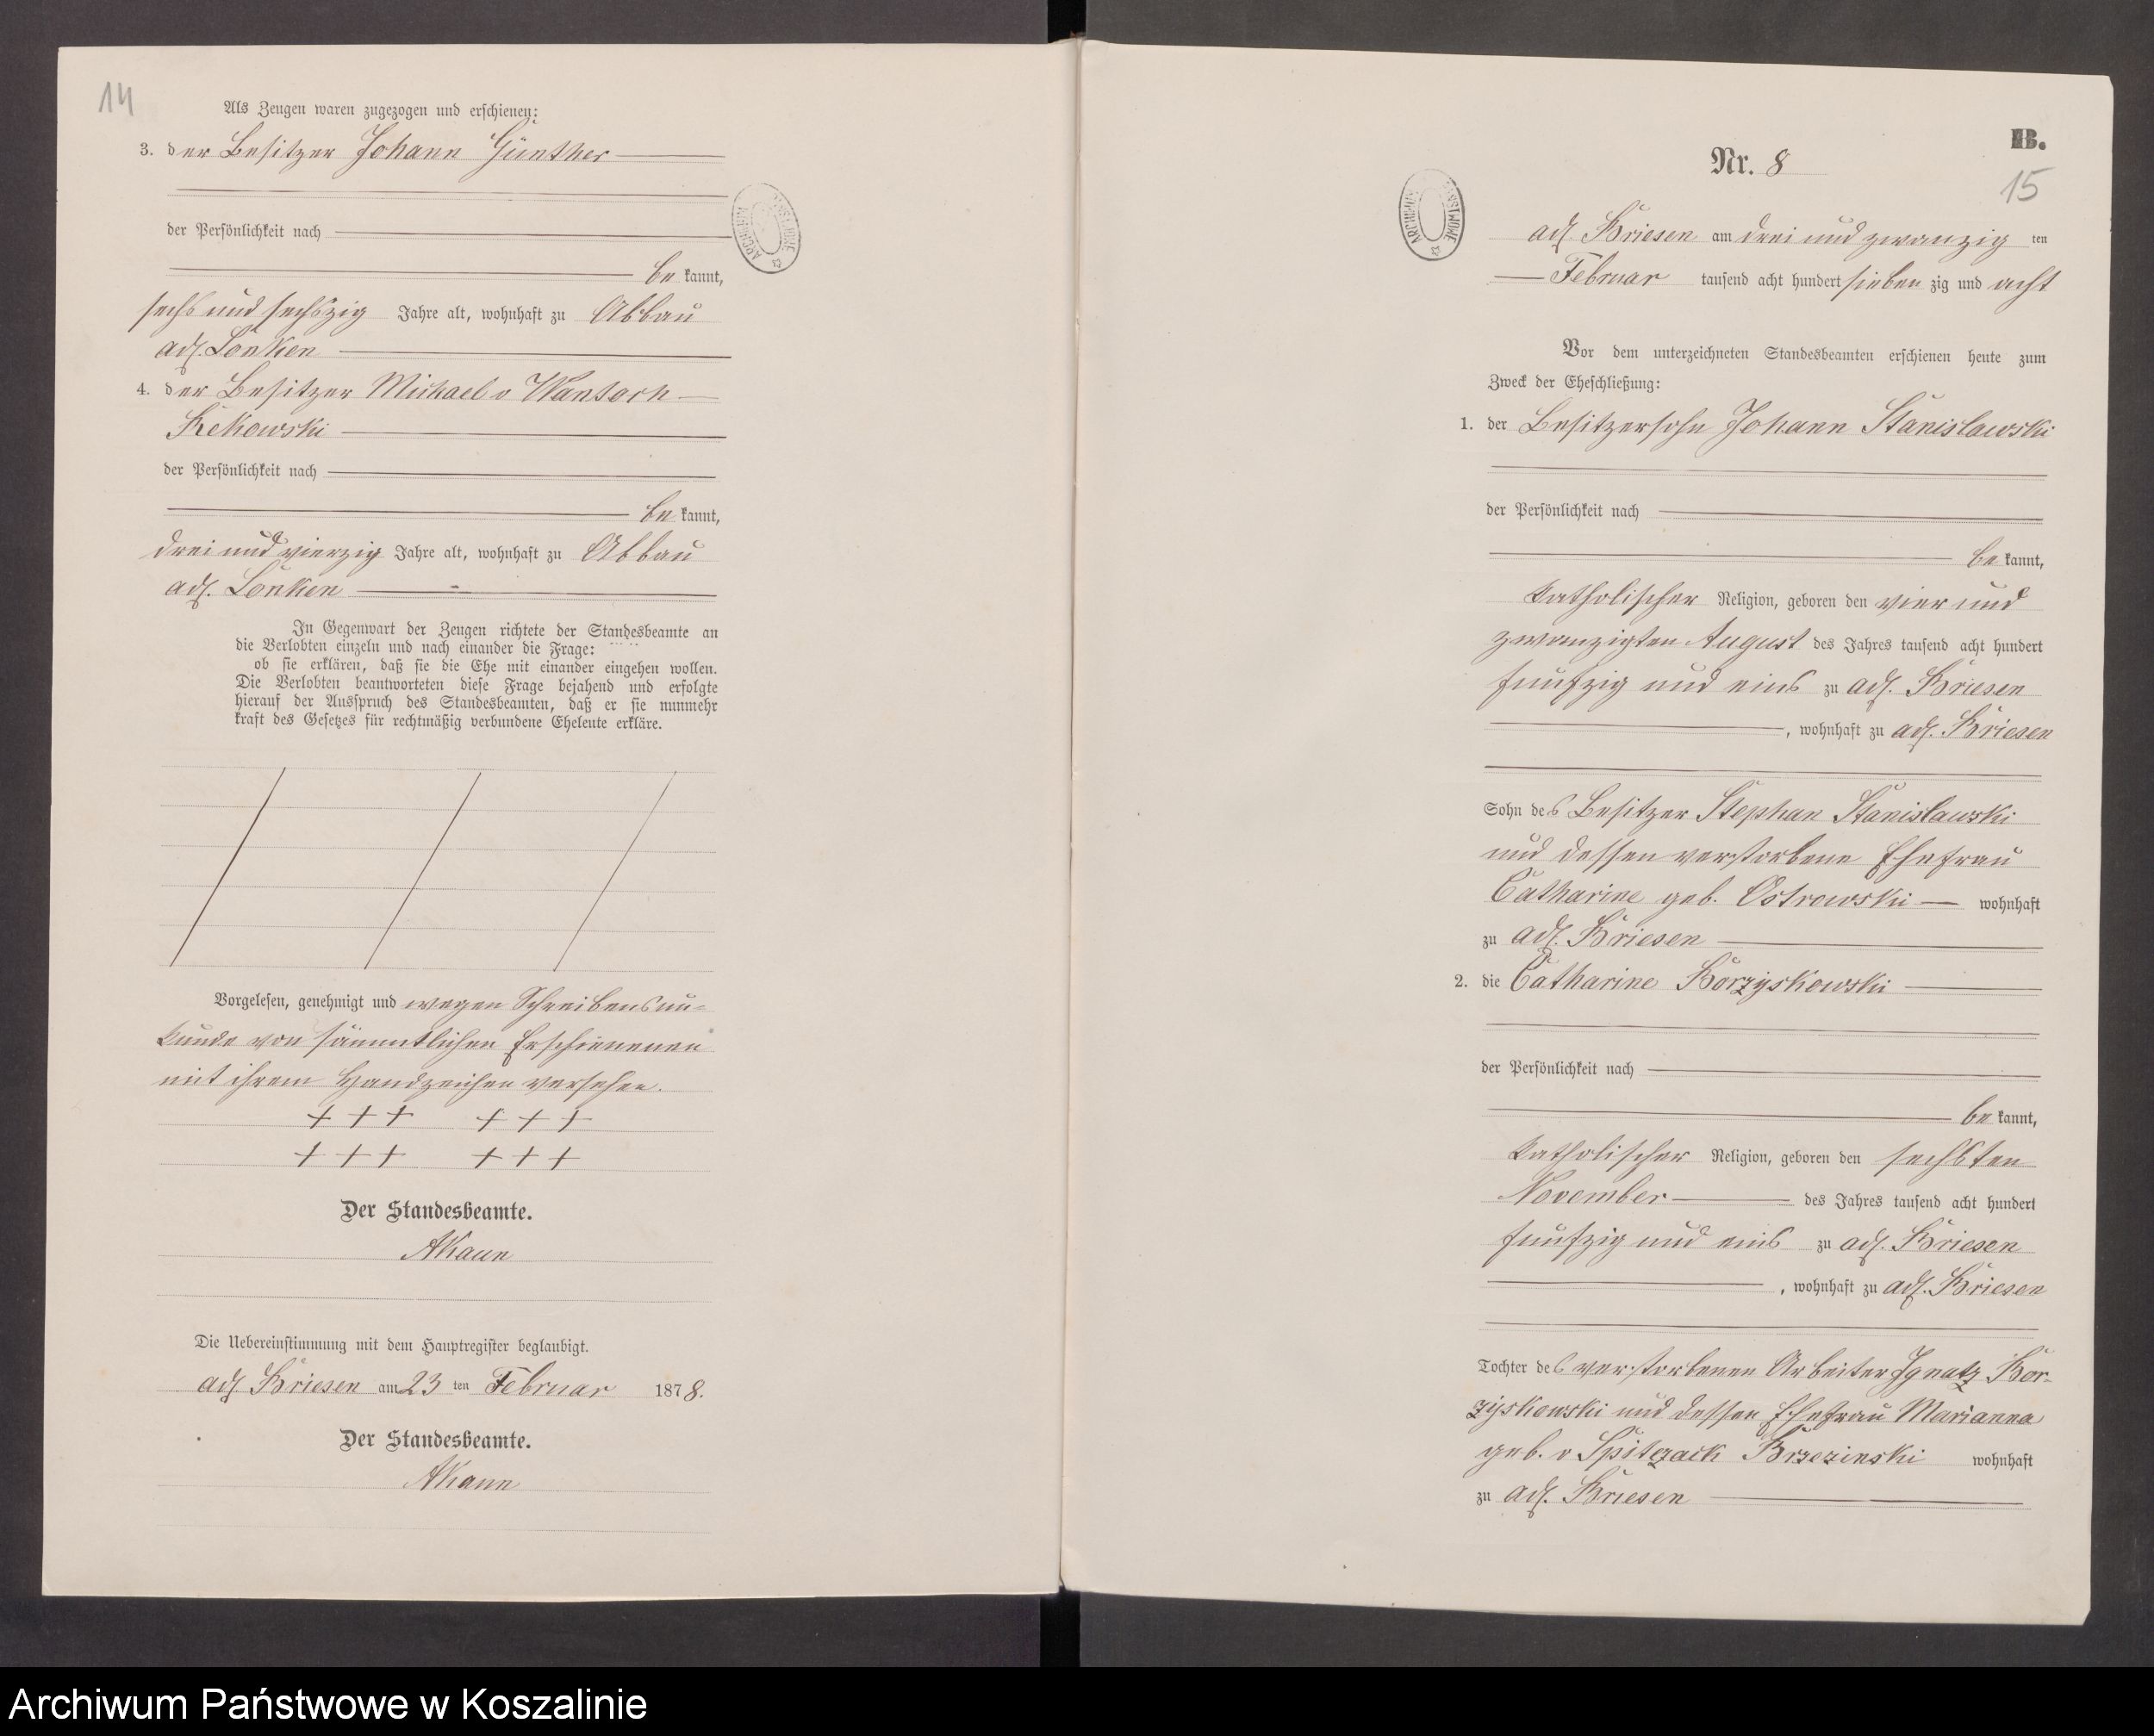 14
Als Zeugen waren zugezogen und erschienen:
3. der Besitzer Johann Günther
der Persönlichkeit nach
be kannt,
sechs und sechszig Jahre alt, wohnhaft zu Abbau
adl. Lonken
4. der Besitzer Michael v Wantoch
Rekowski
der Persönlichkeit nach
be kannt,
drei und vierzig Jahre alt, wohnhaft zu Abbau
adl. Lonken
In Gegenwart der Zeugen richtete der Standesbeamte an
die Verlobten einzeln und nach einander die Frage:
ob sie erklären, daß sie die Ehe mit einander eingehen wollen.
Die Verlobten beantworteten diese Frage bejahend und erfolgte
hierauf der Ausspruch des Standesbeamten, daß er sie nunmehr
kraft des Gesetzes für rechtmäßig verbundene Eheleute erkläre.
Vorgelesen, genehmigt und wegen Schreibensun-
kunde von sämmtlichen Erschienenen
mit ihrem Handzeichen versehen.
+ + + + + +
+ + + + + +
Der Standesbeamte.
AKaun
Die Uebereinstimmung mit dem Hauptregister beglaubigt.
adl Briesen am 23 ten Februar 1878.
Der Standesbeamte.
AKaun
B.
Nr. 8
15
ARCHIWUM PAŃSTWOWE
adl. Briesen am drei und zwanzig ten
Februar tausend acht hundert sieben zig und acht
Vor dem unterzeichneten Standesbeamten erschienen heute zum
Zweck der Eheschließung:
1. der Besitzersohn Johann Stanislawski
der Persönlichkeit nach
be kannt,
katholischer Religion, geboren den vier und
zwanzigten August des Jahres tausend acht hundert
funfzig und eins zu adl. Briesen
, wohnhaft zu adl. Briesen
Sohn des Besitzer Stephan Stanislawski
und dessen verstorbene Ehefrau
Catharine geb. Ostrowski wohnhaft
zu adl. Briesen
2. die Catharine Borzyskowski
der Persönlichkeit nach
be kannt,
katholischer Religion, geboren den sechsten
November des Jahres tausend acht hundert
funfzig und eins zu adl. Briesen
, wohnhaft zu adl. Briesen
Tochter des verstorbenen Arbeiter Ignatz Bor-
zyskowski und dessen Ehefrau Marianna
geb. v Spiczack Brzezinski wohnhaft
zu adl. Briesen
Archiwum Państwowe w Koszalinie